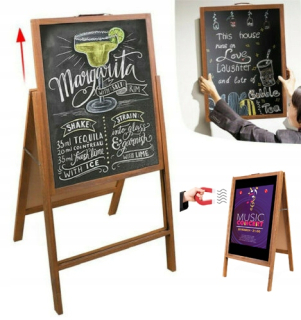 Margarita
with SALT RIM
SHAKE
35ml TEQUILA
20ml COINTREAU
35ml fresh lime
WITH ICE
STRAIN
into glass
& garnish
WITH LIME
This house
runs on
Love
Laughter
and lots
of
Bubble
Tea
MUSIC